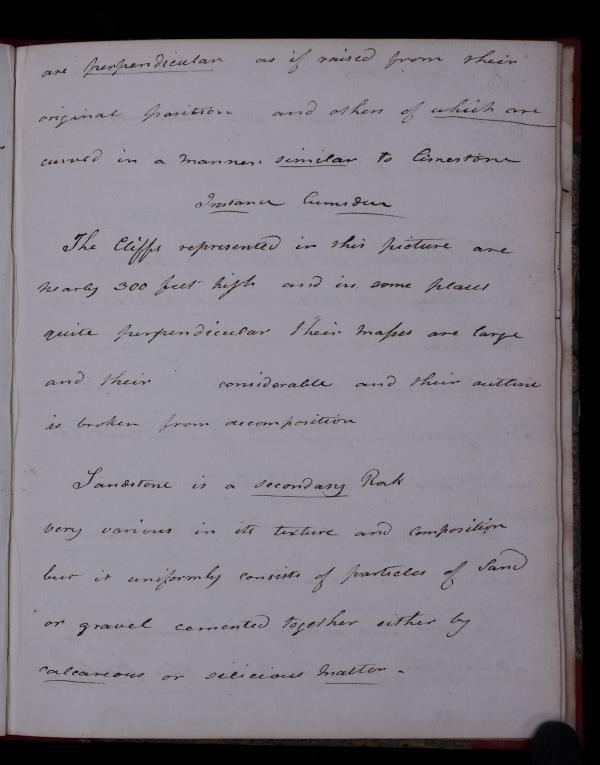 are perpendicular as if raised from their
original position and others of which are
curved in a manner similar to Limestone
Instance
The Cliffs represented in this picture are
nearly 300 feet high and in some places
quite perpendicular Their Masses are large
and their considerable and their outline
is broken from decomposition
Sandstone is a secondary Rock
very various in its texture and composition
but it uniformly consists of particles of Sand
or gravel cemented together either by
calcareous or silicious Matter -